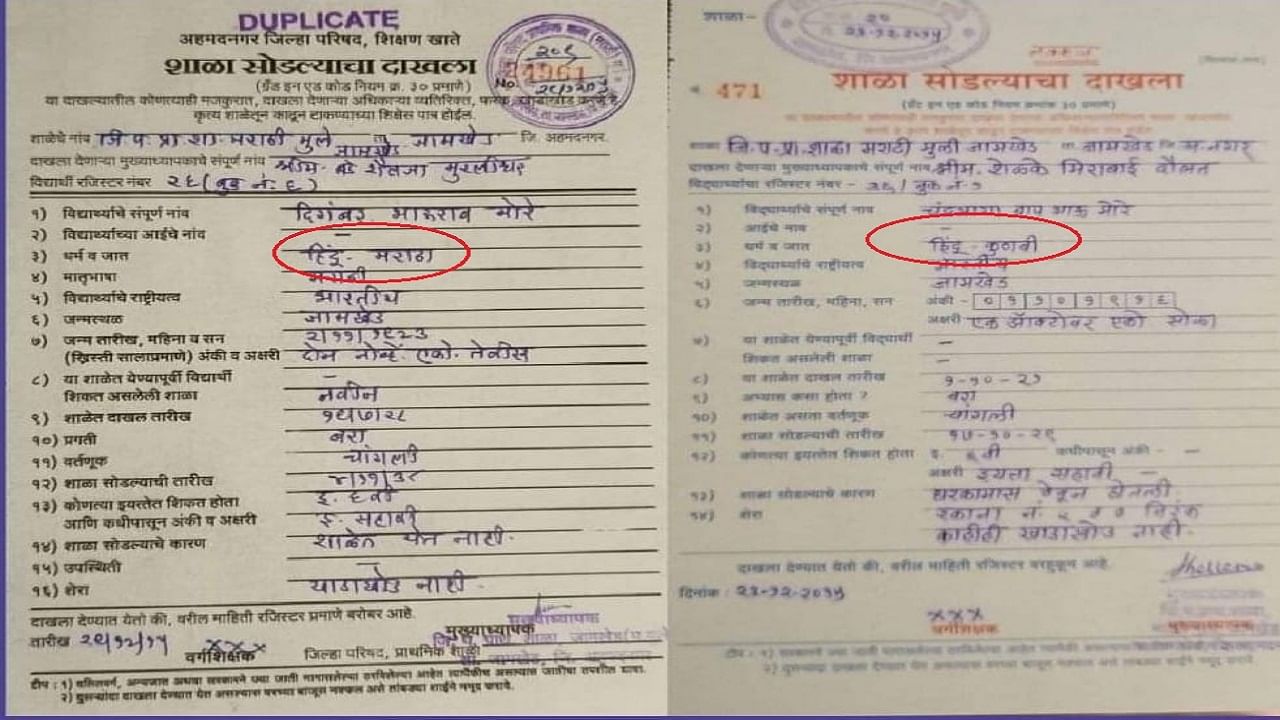 DUPLICATE
अहमदनगर जिल्हा परिषद, शिक्षण खाते
शाळा सोडल्याचा दाखला
(ग्रँड इन एड कोड नियम क्र. ३० प्रमाणे)
या दाखल्यातील कोणत्याही मजकुरात, दाखला देणाऱ्या अधिकाऱ्या व्यतिरिक्त,
कृत्य शाळेतून काढून टाकण्याच्या शिक्षेस पात्र होईल.
शाळेचे नांव जि.प.प्रा.शा. मराठी मुले ता. जामखेड जामखेड जि. अहमदनगर.
दाखला देणाऱ्या मुख्याध्यापकाचे संपूर्ण नांव श्रीम. शैलजा मुरलीधर
विद्यार्थी रजिस्टर नंबर २६ (बुक नं. ६)
१) विद्यार्थ्याचे संपूर्ण नांव दिगंबर भाऊराव मोरे
२) विद्यार्थ्याच्या आईचे नांव –
३) धर्म व जात हिंदू - मराठा
४) मातृभाषा मराठी
५) विद्यार्थ्याचे राष्ट्रीयत्व भारतीय
६) जन्मस्थळ जामखेड
७) जन्म तारीख, महिना व सन २/११/१९२३
(ख्रिस्ती सालाप्रमाणे) अंकी व अक्षरी दोन नोव्हें. एको. तेवीस
८) या शाळेत येण्यापूर्वी विद्यार्थी –
शिकत असलेली शाळा नवीन
९) शाळेत दाखल तारीख १६/७/२८
१०) प्रगती बरा
११) वर्तणूक चांगली
१२) शाळा सोडल्याची तारीख
१३) कोणत्या इयत्तेत शिकत होता इ. ६ वी
आणि कधीपासून अंकी व अक्षरी इ. सहावी
१४) शाळा सोडल्याचे कारण शाळेत येत नाही.
१५) उपस्थिती –
१६) शेरा खाडाखोड नाही.
दाखला देण्यात येतो की, वरील माहिती रजिस्टर प्रमाणे बरोबर आहे.
तारीख २९/१२/१५
वर्गशिक्षक
मुख्याध्यापक
जिल्हा परिषद, प्राथमिक शाळा
शाळा-
२३-१२-२०१५
शाळा सोडल्याचा दाखला
471
(ग्रँड इन एड कोड नियम क्रमांक ३० प्रमाणे)
शाळा जि.प.प्रा.शाळा मराठी मुली जामखेड ता. जामखेड जि. अ.नगर
दाखला देणाऱ्या मुख्याध्यापकाचे संपूर्ण नांव श्रीम. शेळके मिराबाई दौलत
विद्यार्थ्याचा रजिस्टर नंबर - २६/ बुक नं १
१) विद्यार्थ्याचे संपूर्ण नाव चंद्रभागा बापू भाऊ मोरे
२) आईचे नाव –
३) धर्म व जात हिंदू - कुणबी
४) विद्यार्थ्याचे राष्ट्रीयत्व भारतीय
५) जन्मस्थळ जामखेड
६) जन्म तारीख, महिना, सन अंकी - ०११०१९१६
अक्षरी एक ऑक्टोबर एको सोळा
७) या शाळेत येण्यापूर्वी विद्यार्थी –
शिकत असलेली शाळा –
८) या शाळेत दाखल तारीख १-१०-२१
९) अभ्यास कसा होता ? बरा
१०) शाळेत असता वर्तणूक चांगली
११) शाळा सोडल्याची तारीख १७-१०-२९
१२) कोणत्या इयत्तेत शिकत होता इ. ६ वी कधीपासून अंकी - –
अक्षरी इयत्ता सहावी –
१३) शाळा सोडल्याचे कारण घरकामास ठेवून घेतली.
१४) शेरा रकाना नं.
काहीही खाडाखोड नाही.
दाखला देण्यात येतो की, वरील माहिती रजिस्टर बरहुकूम आहे.
दिनांक : २३-१२-२०१५
वर्गशिक्षक
मुख्याध्यापक